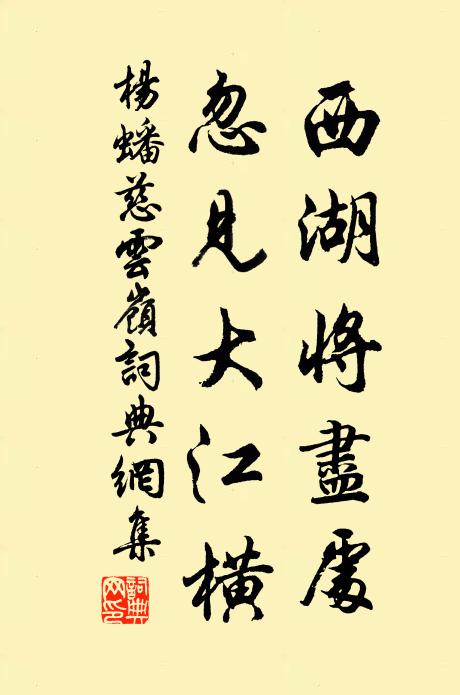 西湖將盡處
忽見大江橫
楊蟠慈雲嶺詞典網集
詞典
网印